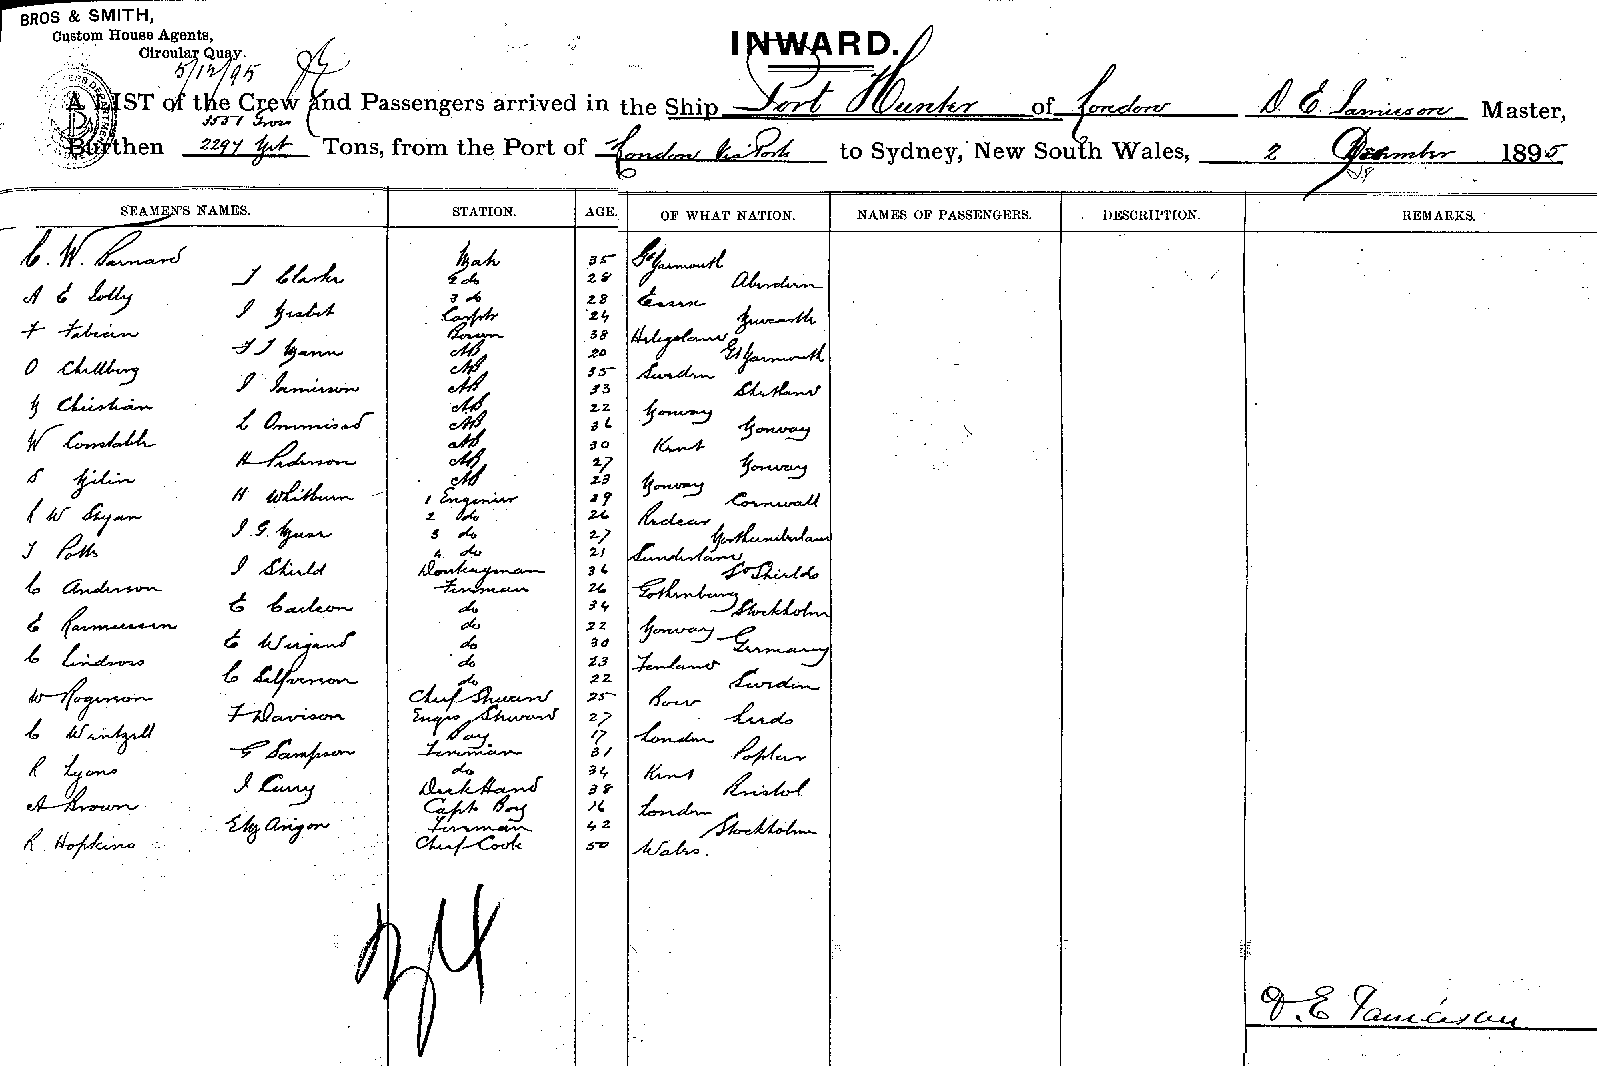 BROS & SMITH,
Custom House Agents,
Circular Quay.
5/12/95
INWARD.
A LIST of the Crew and Passengers arrived in the Ship Port Hunter of London D. E. Jamieson Master,
3551 Gross
Burthen 2297 Tons, from the Port of London via Ports to Sydney, New South Wales, 2 December 1895
SEAMEN'S NAMES. STATION. AGE. OF WHAT NATION. NAMES OF PASSENGERS. DESCRIPTION. REMARKS.
C. W. Barnard Mate 35 Gt Yarmouth
J Clarke 2 do 28 Aberdeen
A E Jolly 3 do 28 Essex
J Nisbet Carptr 24 Newcastle
F Fabian Bosun 38 Heligoland
F J Mann AB 20 Gt Yarmouth
O Chellberg AB 35 Sweden
J Jamieson AB 33 Shetland
N Christian AB 22 Norway
L Ommisad AB 36 Norway
W Constable AB 30 Kent
H Pederson AB 27 Norway
S AB 23 Norway
H Whitburn 1 Engenier 29 Cornwall
R W Shyan 2 do 26 Redcar
J. G. 3 do 27 Northumberland
J Potts 4 do 21 Sunderland
J Shield Donkeyman 36 So Shields
C Anderson Fireman 26 Gothenburg
E Carlson do 34 Stockholm
E Rasmussen do 22 Norway
E Wiegand do 30 Germany
C Lindroos do 23 Finland
C Selfverson do 22 Sweden
W Rogerson Chief Steward 25 Bow
F Davison Engrs Steward 27 Leeds
C Wintzell Boy 17 London
G Sampson Fireman 31 Poplar
R Lyons do 34 Kent
J Curry Deck Hand 38 Bristol
A Brown Capts Boy 16 London
Fireman 42 Stockholm
R Hopkins Chief Cook 50 Wales.
D. E. Jamieson